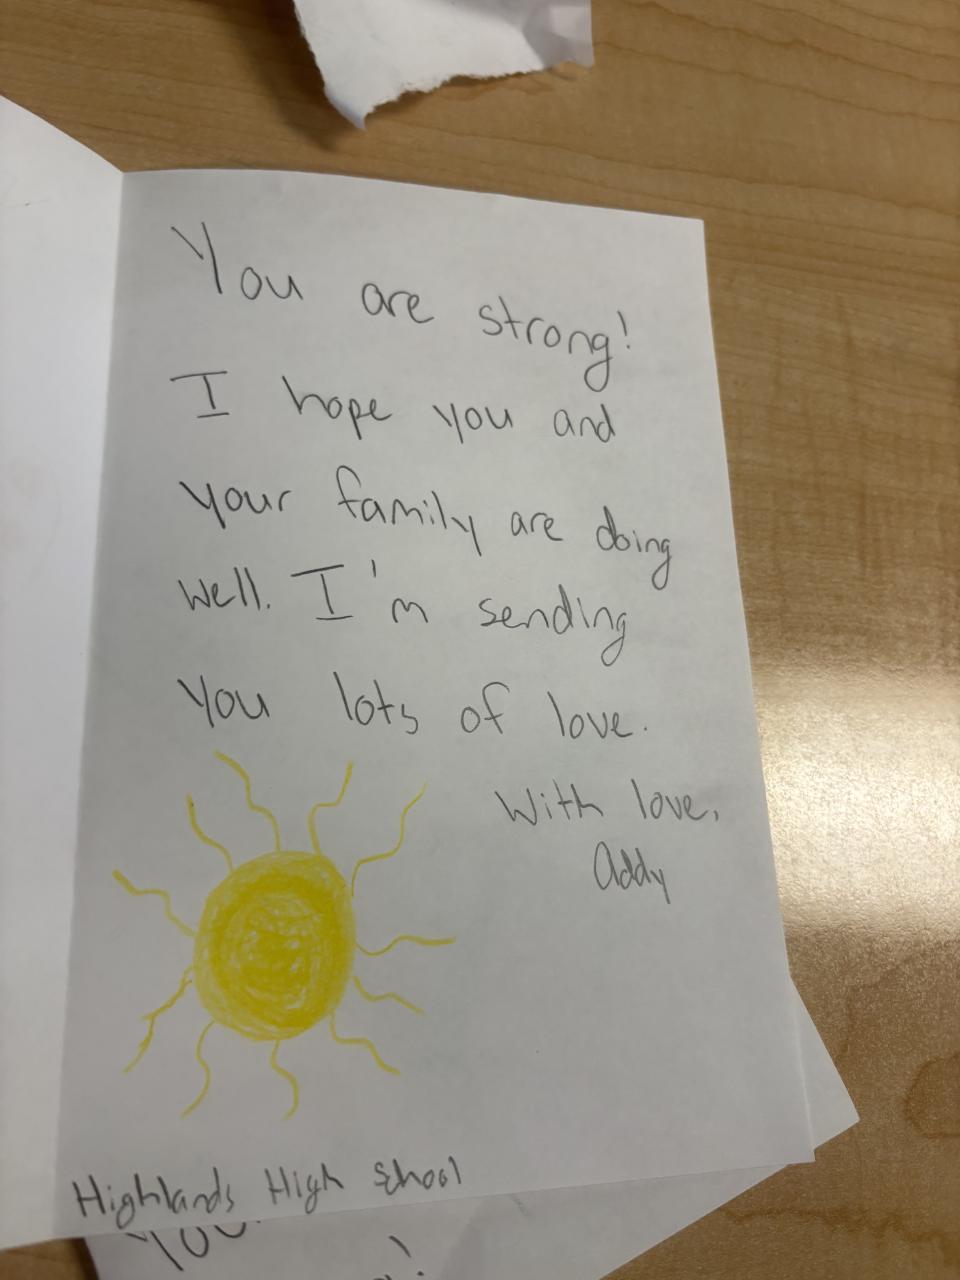 You are strong!
I hope you and
your family are doing
well. I'm sending
you lots of love.
With love,
Addy
Highlands High School
You